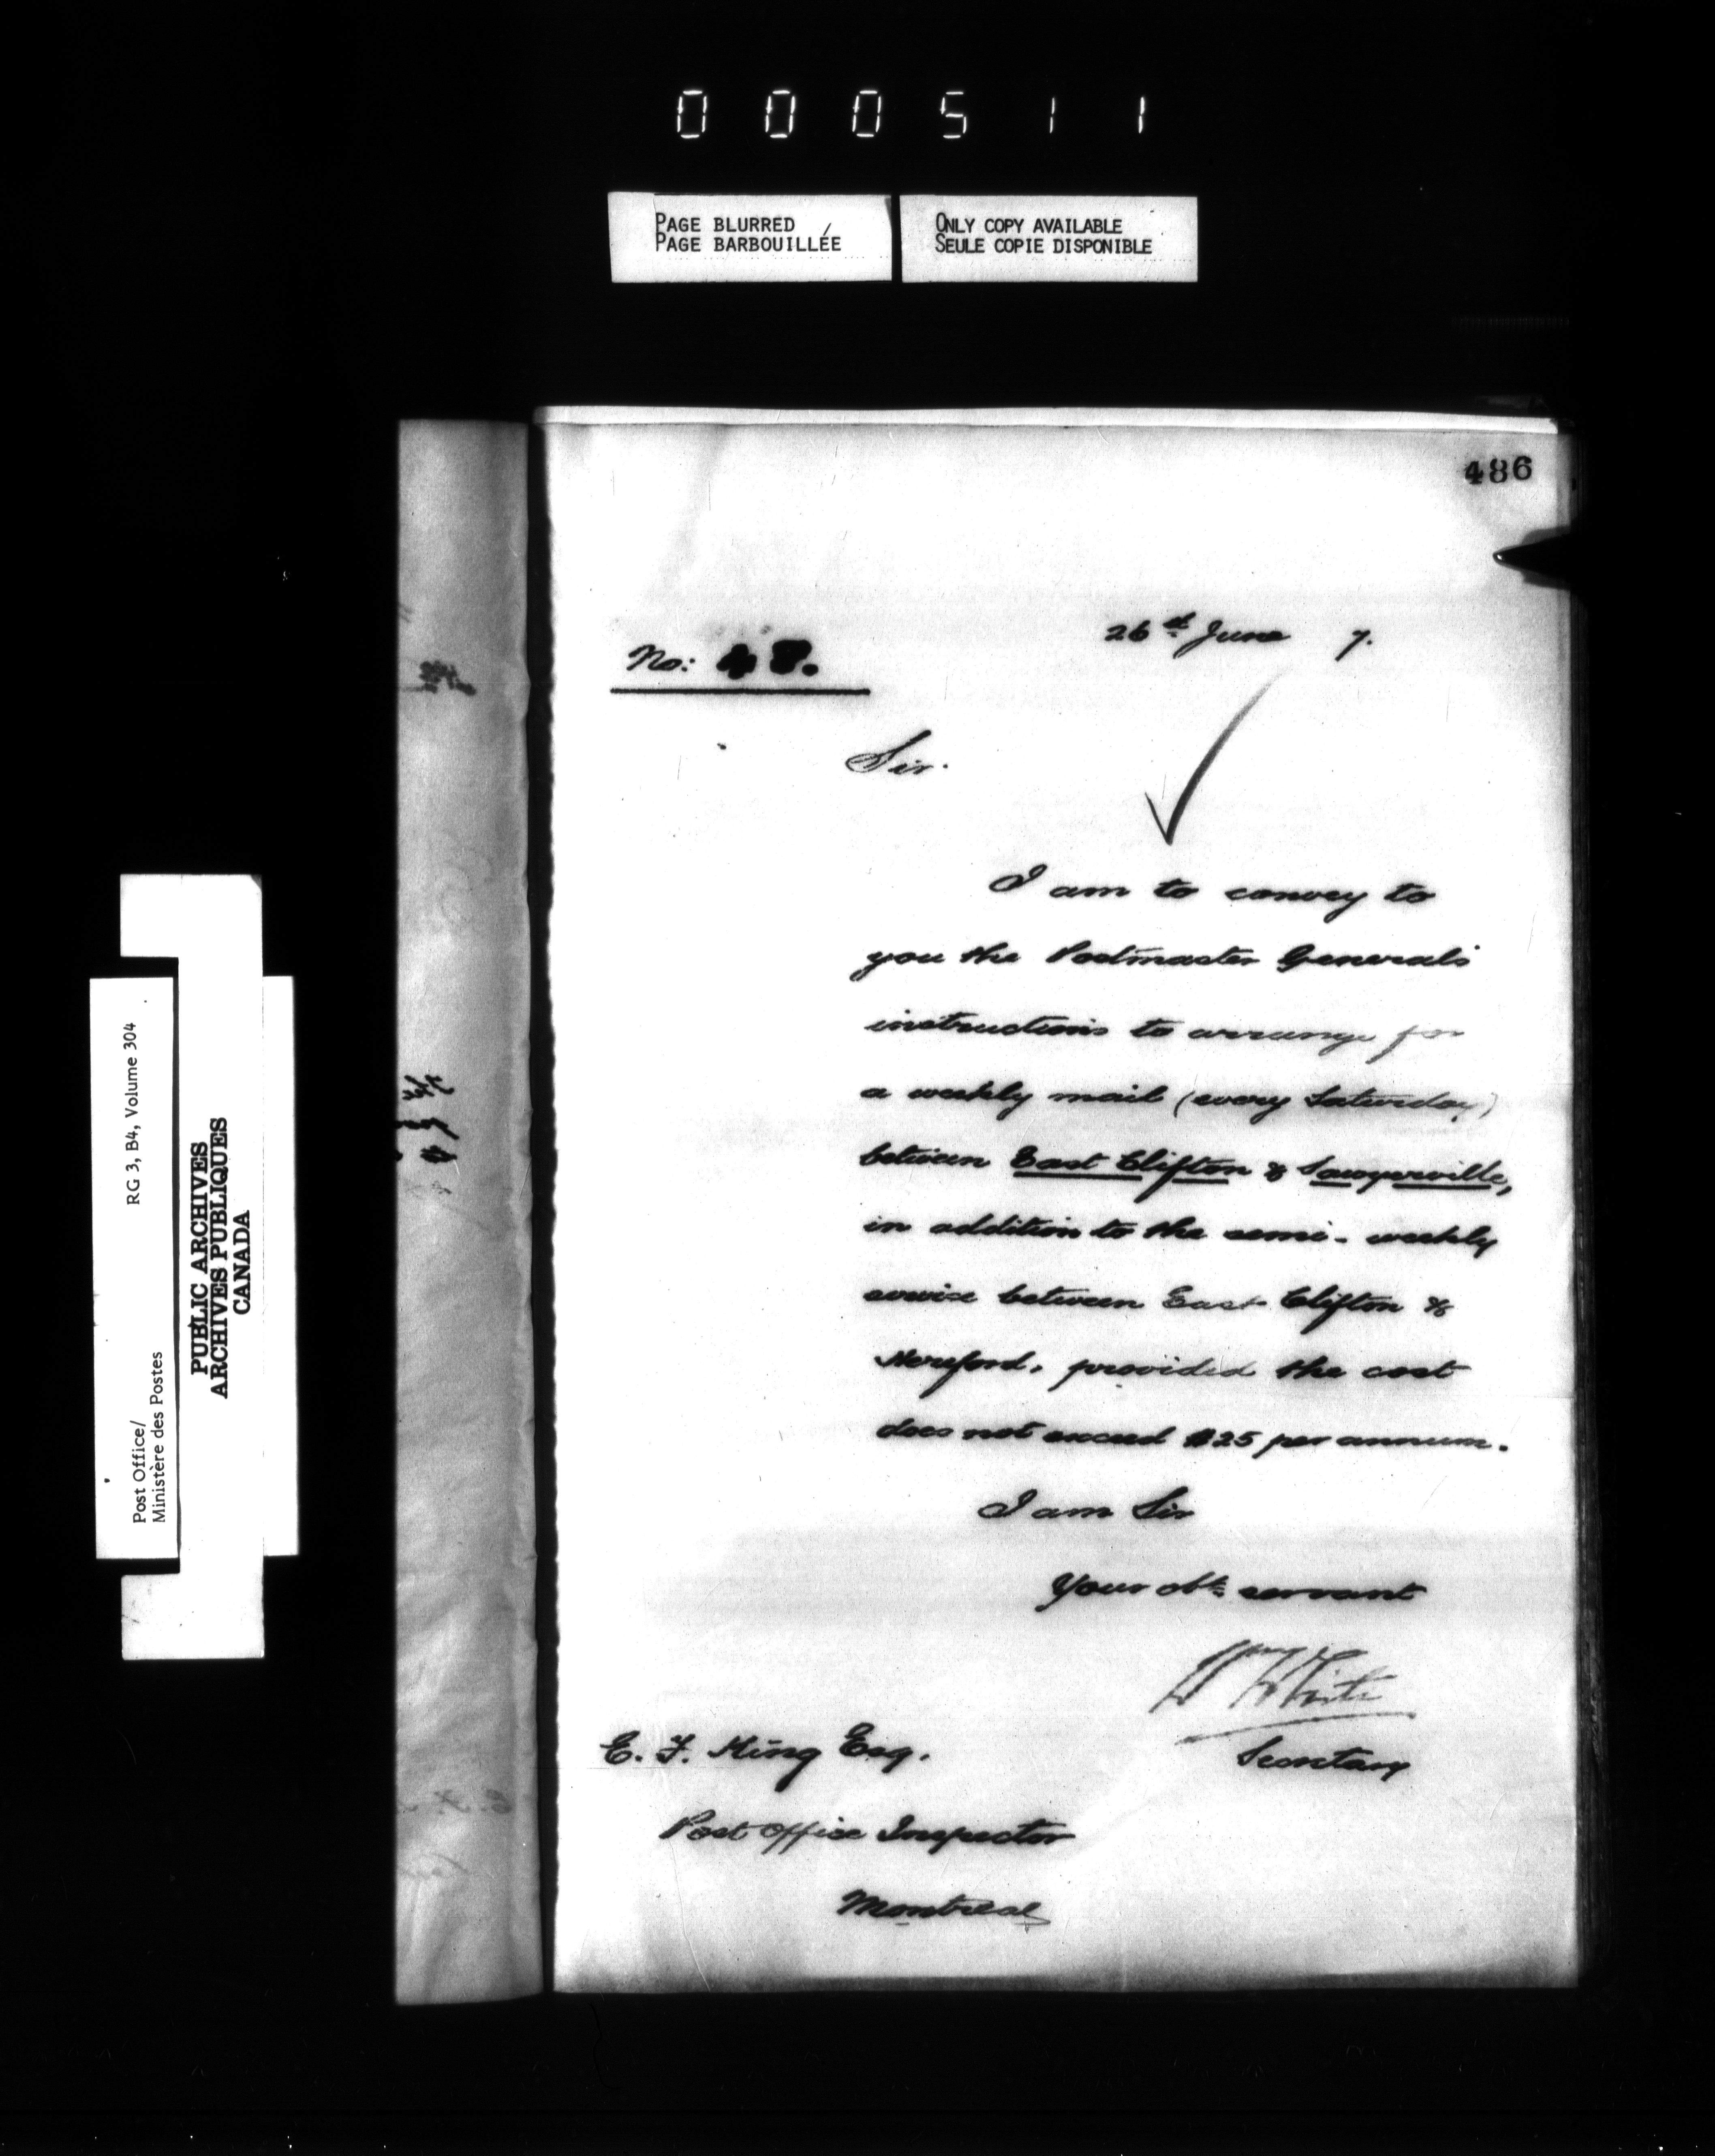 000511
PAGE BLURRED
PAGE BARBOUILLÉE
ONLY COPY AVAILABLE
SEULE COPIE DISPONIBLE
486
26th June 7.
No: 48.
Sir.
I am to convey to
you the Postmaster General's
instructions to arrange for
a weekly mail (every Saturday)
between East Clifton & Sawyerville,
in addition to the semi-weekly
service between East Clifton &
Hereford, provided the cost
does not exceed $25 per annum.
I am Sir
Your obt. servant
Wm White
Secretary
E. F. King Esq.
Post Office Inspector
Montreal
Post Office/
Ministère des Postes
RG 3, B4, Volume 304
PUBLIC ARCHIVES
ARCHIVES PUBLIQUES
CANADA